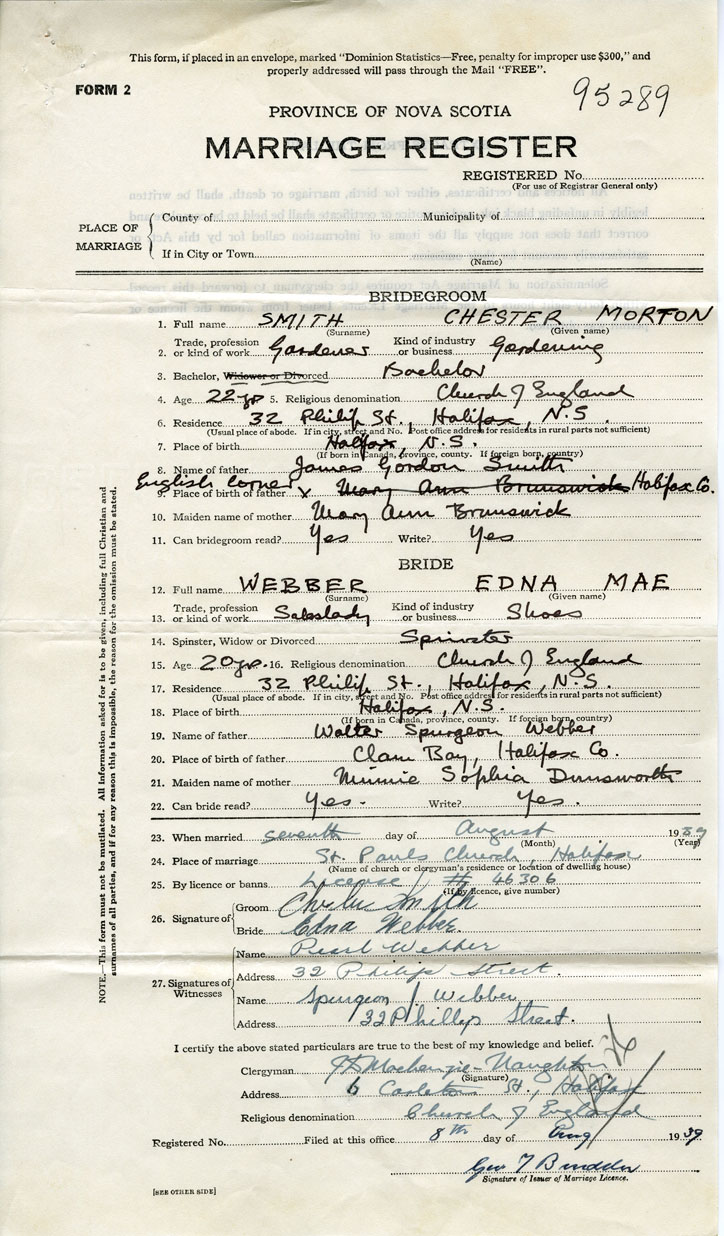 This form, if placed in an envelope, marked "Dominion Statistics—Free, penalty for improper use $300," and
properly addressed will pass through the Mail "FREE".
FORM 2
95289
PROVINCE OF NOVA SCOTIA
MARRIAGE REGISTER
REGISTERED No.
(For use of Registrar General only)
PLACE OF MARRIAGE
County of Municipality of
If in City or Town
(Name)
BRIDEGROOM
1. Full name SMITH CHESTER MORTON
(Surname) (Given name)
2. Trade, profession or kind of work Gardener Kind of industry or business Gardening
3. Bachelor, Widower or Divorced Bachelor
4. Age 22 yrs 5. Religious denomination Church of England
6. Residence 32 Philip St., Halifax, N.S.
(Usual place of abode. If in city, street and No. Post office address for residents in rural parts not sufficient)
7. Place of birth Halifax, N.S.
(If born in Canada, province, county. If foreign born, country)
8. Name of father James Gordon Smith
English Corner
9. Place of birth of father x Mary Ann Brunswick Halifax Co.
10. Maiden name of mother Mary Ann Brunswick
11. Can bridegroom read? Yes Write? Yes
BRIDE
12. Full name WEBBER EDNA MAE
(Surname) (Given name)
13. Trade, profession or kind of work Saleslady Kind of industry or business Shoes
14. Spinster, Widow or Divorced Spinster
15. Age 20 yrs. 16. Religious denomination Church of England
17. Residence 32 Philip St., Halifax, N.S.
(Usual place of abode. If in city, street and No. Post office address for residents in rural parts not sufficient)
18. Place of birth Halifax, N.S.
(If born in Canada, province, county. If foreign born, country)
19. Name of father Walter Spurgeon Webber
20. Place of birth of father Clam Bay, Halifax Co.
21. Maiden name of mother Minnie Sophia Dunsworth
22. Can bride read? Yes. Write? Yes.
23. When married seventh day of August 1939
(Month) (Year)
24. Place of marriage St. Pauls Church, Halifax
(Name of church or clergyman's residence or location of dwelling house)
25. By licence or banns License # 46306
(If by licence, give number)
26. Signature of
Groom Chester Smith
Bride Edna Webber
27. Signatures of Witnesses
Name Pearl Webber
Address 32 Philip Street.
Name Spurgeon Webber
Address 32 Phillip Street.
I certify the above stated particulars are true to the best of my knowledge and belief.
Clergyman Mackenzie-Naughton
(Signature)
Address 6 Carleton St., Halifax
Religious denomination Church of England
Registered No. Filed at this office 8th day of Aug 1939
Geo T
Signature of Issuer of Marriage Licence.
[SEE OTHER SIDE]
NOTE.—This form must not be mutilated. All information asked for is to be given, including full Christian and
surnames of all parties, and if for any reason this is impossible, the reason for the omission must be stated.